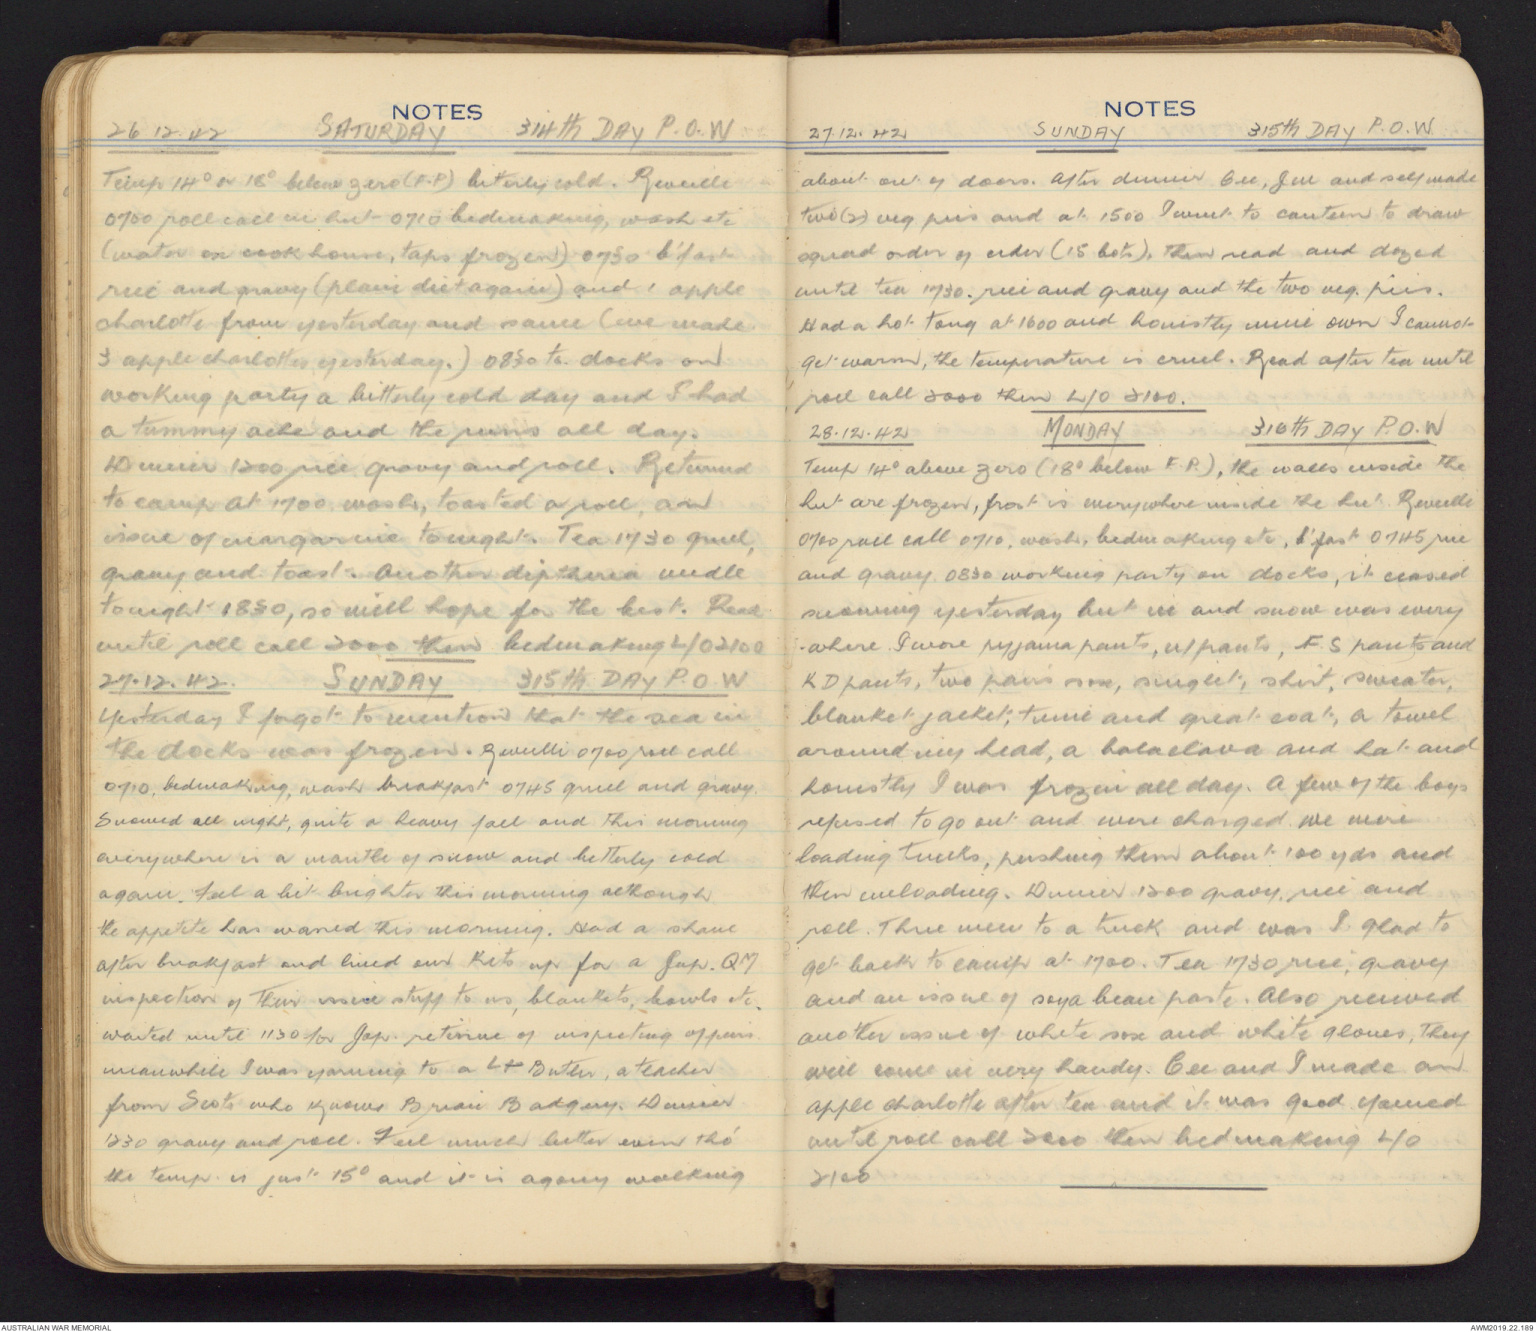 NOTES
26.12.42 SATURDAY 314th DAY P.O.W
Temp 14° or 18° below zero (F.P) bitterly cold. Reveille
0700 roll call in hut 0710 bedmaking, wash etc
(water ex cook house, taps frozen) 0730 b'fast
rice and gravy (plain diet again) and 1 apple
charlotte from yesterday and sauce (we made
3 apple charlottes yesterday.) 0830 to docks on
working party a bitterly cold day and I had
a tummy ache and the runs all day.
Dinner 1200 rice gravy and roll. Returned
to camp at 1700 wash, toasted a roll, an
issue of margarine tonight. Tea 1730 gruel,
gravy and toast. Another diptheria needle
tonight 1830, so will hope for the best. Read
until roll call 2000 then bedmaking L/O 2100
27.12.42. SUNDAY 315th DAY P.O.W
Yesterday I forgot to mention that the sea in
the docks was frozen. Reveille 0700 roll call
0710, bedmaking, wash breakfast 0745 gruel and gravy.
Snowed all night, quite a heavy fall and this morning
everywhere is a mantle of snow and bitterly cold
again. Feel a bit brighter this morning although
the appetite has waned this morning. Had a shave
after breakfast and lined our kits up for a Jap. QM
inspection of their issue stuff to us, blankets, bowls etc.
waited until 1130 for Jap. retinue of inspecting officers
meanwhile I was yarning to a Lt Butler, a teacher
from Scots who knows Brian Badgery. Dinner
1230 gravy and roll. Feel much better even tho'
the temp. is just 15° and it is agony walking
NOTES
27.12.42 SUNDAY 315th DAY P.O.W
about out of doors. After dinner Cec, Jim and self made
two (2) veg pies and at 1500 I went to canteen to draw
squad order of cider (15 bots), then read and dozed
until tea 1730. rice and gravy and the two veg. pies.
Had a hot tong at 1600 and honestly mine own I cannot
get warm, the temperature is cruel. Read after tea until
roll call 2000 then L/O 2100.
28.12.42 MONDAY 316th DAY P.O.W
Temp 14° above zero (18° below F.P.), the walls inside the
hut are frozen, frost is everywhere inside the hut. Reveille
0700 roll call 0710, wash, bedmaking etc, b'fast 0745 rice
and gravy. 0830 working party on docks, it ceased
snowing yesterday but ice and snow was every
-where. I wore pyjama pants, u/pants, F.S pants and
KD pants, two pairs sox, singlet, shirt, sweater,
blanket jacket, tunic and great coat, a towel
around my head, a balaclava and hat and
honestly I was frozen all day. A few of the boys
refused to go out and were charged. we were
loading trucks, pushing them about 100 yds and
then unloading. Dinner 1200 gravy, rice and
roll. Three men to a truck and was I glad to
get back to camp at 1700. Tea 1730 rice, gravy
and an issue of soya bean paste. Also received
another issue of white sox and white gloves, they
will come in very handy. Cec and I made an
apple charlotte after tea and it was good. yarned
until roll call 2000 then bedmaking L/O
2100
AUSTRALIAN WAR MEMORIAL
AWM2019.22.189